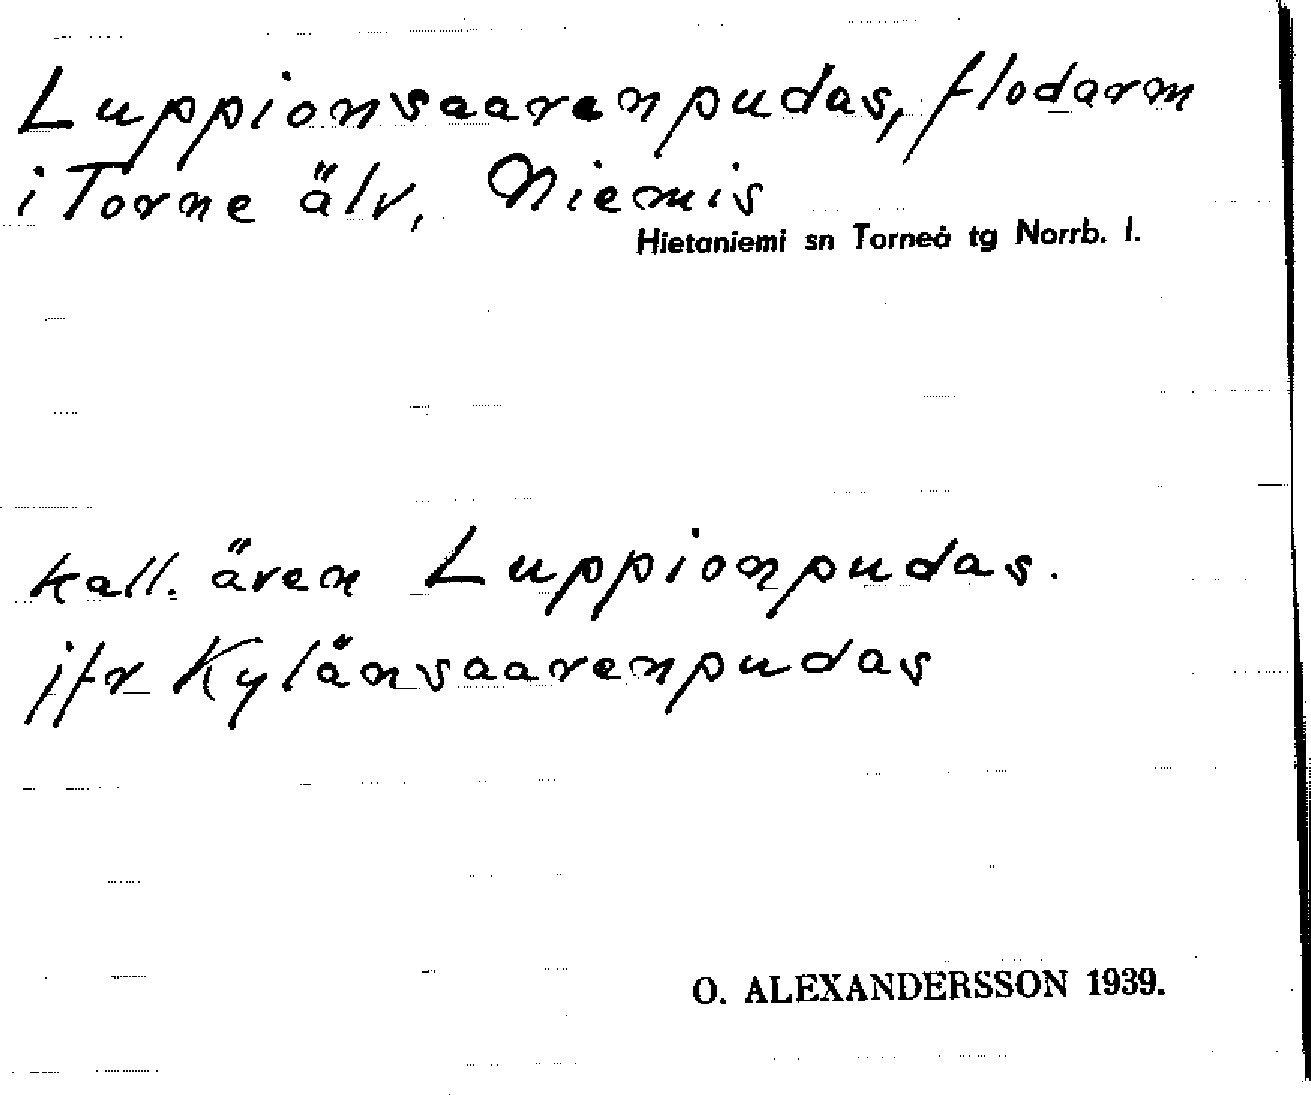 Luppionsaarenpudas, flodarm
i Torne älv, Niemis
Hietaniemi sn Torneå tg Norrb. l.
kall. även Luppionpudas.
jfr Kylänsaarenpudas
O. ALEXANDERSSON 1939.